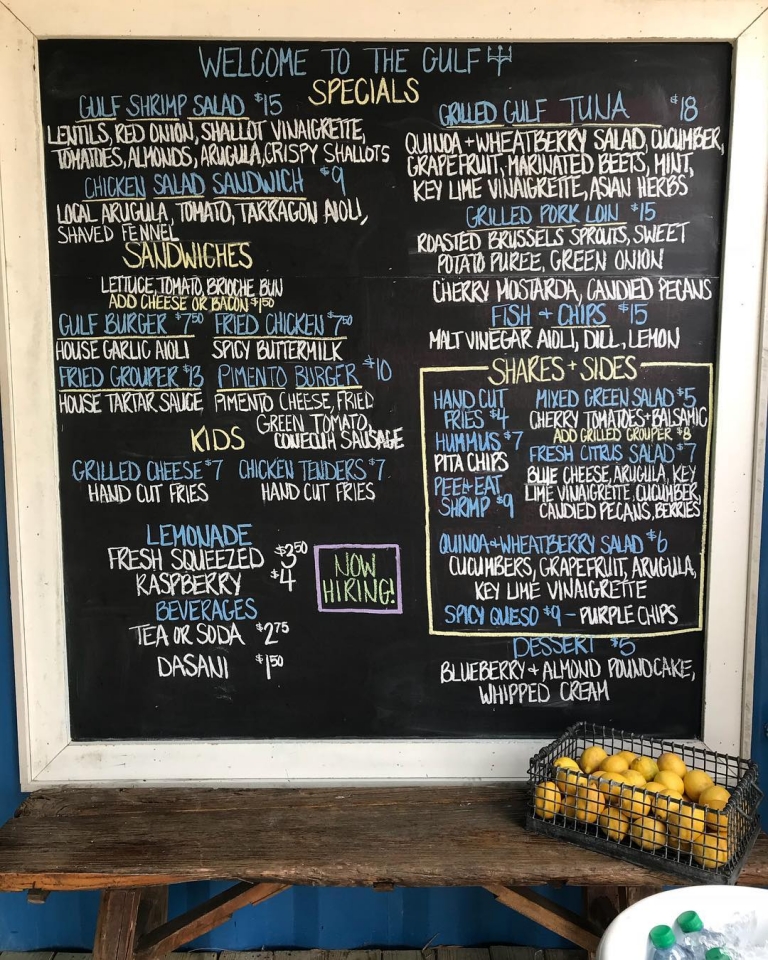 WELCOME TO THE GULF
SPECIALS
GULF SHRIMP SALAD $15
LENTILS, RED ONION, SHALLOT VINAIGRETTE,
TOMATOES, ALMONDS, ARUGULA, CRISPY SHALLOTS
CHICKEN SALAD SANDWICH $9
LOCAL ARUGULA, TOMATO, TARRAGON AIOLI,
SHAVED FENNEL
SANDWICHES
LETTUCE, TOMATO, BRIOCHE BUN
ADD CHEESE OR BACON $1.50
GULF BURGER $7.50 FRIED CHICKEN $7.50
HOUSE GARLIC AIOLI SPICY BUTTERMILK
FRIED GROUPER $13 PIMENTO BURGER $10
HOUSE TARTAR SAUCE PIMENTO CHEESE, FRIED
GREEN TOMATO,
CONECUH SAUSAGE
KIDS
GRILLED CHEESE $7 CHICKEN TENDERS $7
HAND CUT FRIES HAND CUT FRIES
LEMONADE
FRESH SQUEEZED $3.50
RASPBERRY $4
BEVERAGES
TEA OR SODA $2.75
DASANI $1.50
NOW
HIRING!
GRILLED GULF TUNA $18
QUINOA + WHEATBERRY SALAD, CUCUMBER,
GRAPEFRUIT, MARINATED BEETS, MINT,
KEY LIME VINAIGRETTE, ASIAN HERBS
GRILLED PORK LOIN $15
ROASTED BRUSSELS SPROUTS, SWEET
POTATO PUREE, GREEN ONION
CHERRY MOSTARDA, CANDIED PECANS
FISH + CHIPS $15
MALT VINEGAR AIOLI, DILL, LEMON
SHARES + SIDES
HAND CUT
FRIES $4
HUMMUS $7
PITA CHIPS
PEEL+EAT
SHRIMP $9
MIXED GREEN SALAD $5
CHERRY TOMATOES+BALSAMIC
ADD GRILLED GROUPER $8
FRESH CITRUS SALAD $7
BLUE CHEESE, ARUGULA, KEY
LIME VINAIGRETTE, CUCUMBER,
CANDIED PECANS, BERRIES
QUINOA+WHEATBERRY SALAD $6
CUCUMBERS, GRAPEFRUIT, ARUGULA,
KEY LIME VINAIGRETTE
SPICY QUESO $9 - PURPLE CHIPS
DESSERT $5
BLUEBERRY + ALMOND POUNDCAKE,
WHIPPED CREAM